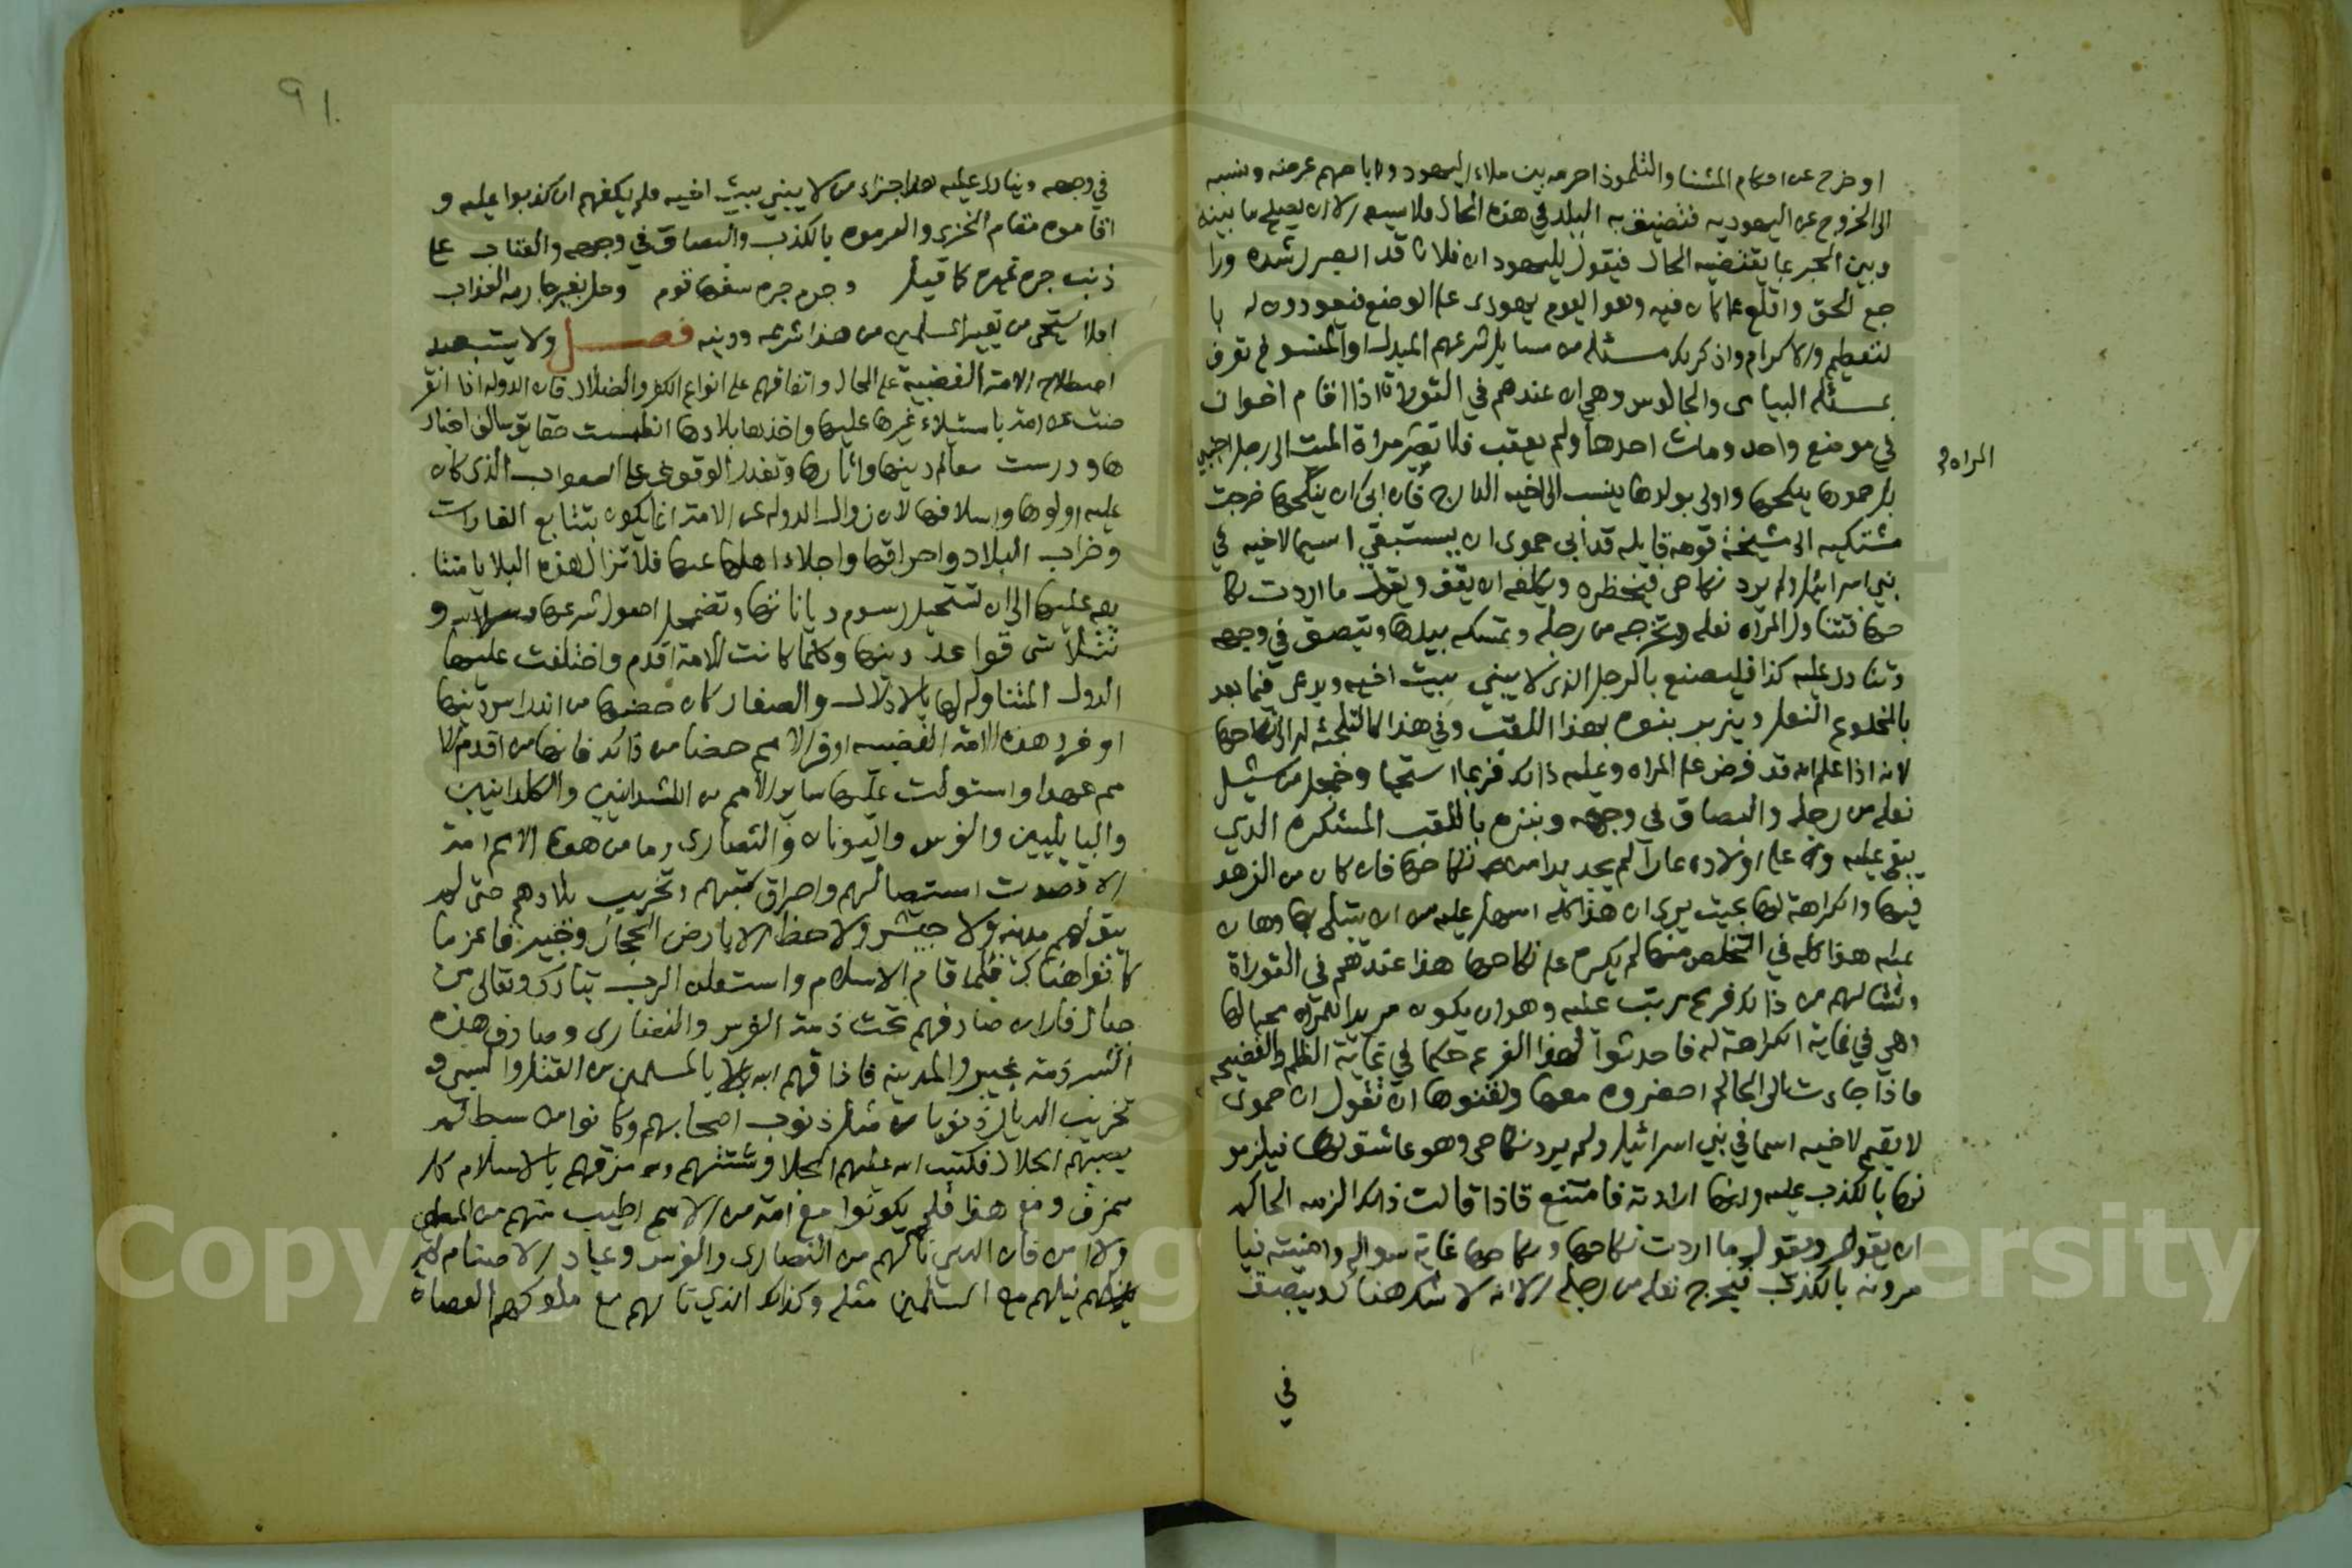 او خرج عن احكام المشنا والتلموذ احرمه بين ملاء اليهود واباحهم عرضه ونسبه
الى الخروج عن اليهوديه فتضيق به البلد في هذه الحال فلا يسعه الا ان يصلح ما بينه
وبين الحبر بما يقتضيه الحال فيقول لليهود ان فلانا قد ابصر رشده ورا
جع الحق واقلع عما كان فيه وهو اليوم يهودى على الوضع فيعودون له با
لتعظيم والاكرام واذكر لك مسئله من مسايل شرعهم المبدل او المنسوخ تعرف
بمسئله البياى والجالوس وهي ان عندهم في التوراة اذا اقام اخوان
في موضع واحد ومات احدهما ولم يعقب فلا تصير مراة الميت الى رجل اجنبي
المراه
بل حموها ينكحها واول بولدها ينسب الى اخيه الدارج فان ابى ان ينكحها خرجت
مشتكيه الى مشيخة قومه قايله قد أبى حموى ان يستبقي اسما لاخيه في
بني اسرائيل ولم يرد نكاحى فيحضره ويكلفه ان يقف ويقول ما اردت نكا
حها فتتناول المراه نعله وتخرجه من رجله وتمسكه بيدها وتبصق في وجهه
وتنادى عليه كذا فليصنع بالرجل الذى لا يبني بيت اخيه ويدعى فيما بعد
بالمخلوع النعل وينبز بنوه بهذا اللقب وفي هذا كالتلجئه له الى نكاحها
لانه اذا علم انه قد فرض على المراه وعليه ذالك فربما استحيا وخجل من شيل
نعله من رجله والبصاق في وجهه ونبزه باللقب المستكره الذي
يبقى عليه وعلى اولاده عارا لم يجد بدا من نكاحها فان كان من الزهد
فيها والكراهة لها بحيث يرى ان هذا كله اسهل عليه من ان يبتلى بها وهان
عليه هذا كله في التخلص منها لم يكره على نكاحها هذا عندهم في التوراة
ونشا لهم من ذالك فرع مرتب عليه وهو ان يكون مريدا للمراه محبا لها
وهي في غاية الكراهة له فاحدثوا لهذا الفرع حكما في غاية الظلم والفضيحه
فاذا جاءت الى الحاكم احضروه معها ولقنوها ان تقول ان حموى
لا يقيم لاخيه اسما في بني اسرائيل ولم يرد نكاحى وهو عاشق لها فيلزمو
نها بالكذب عليه وانها ارادته فامتنع فاذا قالت ذالك الزمه الحاكم
ان يقوم ويقول ما اردت نكاحها ونكاحها غاية سواله وامنيته فيا
مرونه بالكذب فيخرج نعله من رجله الا انه لا شك هناك وبيصق
في
٩١
في وجهه وينادى عليه هذا جزاء من لا يبني بيت اخيه فلم يكفهم ان كذبوا عليه و
اقاموه مقام الخزى والزموه بالكذب والبصاق في وجهه والعتاب على
ذنب جره غيره كما قيل وجرم جره سفهاء قوم وحل بغير جارمه العذاب
افلا يستحى من تعيير المسلمين من هذا شرعه ودينه فصل ولا يستبعد
اصطلاح الامة الغضبية على المحال واتفاقهم على انواع الكفر والضلال فان الدوله اذا انقر
ضت عن امة باستيلاء غيرها عليها واخذها بلادها انطمست حقايق سالف اخبار
ها ودرست معالم دينها واثارها وتعذر الوقوف على الصواب الذى كان
عليه اولوها واسلافها لان زوال الدوله عن الامة انما يكون بتتابع الغارات
وخراب البلاد واحراقها واجلاء اهلها عنها فلا تزال هذه البلايا متتا
بعه عليها الى ان تستحيل رسوم دياناتها وتضمحل اصول شرعها و
تتلاشى قواعد دينها وكلما كانت الامة اقدم واختلفت عليها
الدول المتناوله لها بالاذلال والصغار كان حضها من اندراس دينها
اوفر وهذه الامة الغضبيه اوفر الامم حضا من ذالك فانها من اقدم الا
مم عهدا واستولت عليها ساير الامم من الكشدانيين والكلدانيين
والبابليين والفرس واليونان والنصارى وما من هذه الامم امة
الا قصدت استصالهم واحراق كتبهم وتخريب بلادهم حتى لم
يبق لهم مدينه ولا جيش ولا حظ الا بارض الحجاز وخيبر فاعز ما
كانوا هناك فلما قام الاسلام واستعلن الرب تبارك وتعالى من
جبال فاران صادفهم تحت ذمة الفرس والنصارى وصادف هذه
الشرذمة بخيبر والمدينه فاذاقهم الله بالمسلمين من القتل والسبي و
تخريب الديار ذنوبا مثل ذنوب اصحابهم وكانوا من سبط لم
يصبهم الجلاء فكتب الله عليهم الجلا وشتتهم ومزقهم بالاسلام كل
ممزق ومع هذا فلم يكونوا مع امة من الامم اطيب منهم من المسلمين
ولا امن فان الذي نالهم من النصارى والفرس وعباد الاصنام لم
ينلهم من المسلمين مثله وكذالك الذي نالهم مع ملوكهم العصاة
Copyright © King Saud University